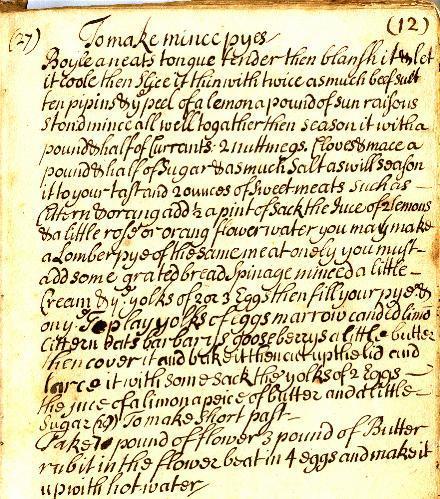 (27) To make mince pyes (12)
Boyle a neats tongue tender then blansh it & let
it coole then slyce it thin with twice as much beef suit
ten pipins & y peel of a lemon a pound of sun raisons
stond mince all well togather then season it with a
pound & half of Currants 2 nuttmegs. Cloves & mace a
pound & half of Sugar & as much Salt as will season
it to your tast and 2 ounces of Sweet meats such as
Cittern & orang add ½ a pint of Sack the Juce of 2 lemons
& a little rose or orang flower water you may make
a Lomber pye of the same meat onely you must
add some grated bread Spinage minced a little
Cream & ye yolks of 2 or 3 Eggs then fill your pye &
on ye Top lay yolks of Eggs marrow candid limo
Cittern Dats barbarys gooseberrys a little butter
then cover it and bake it then cut up the lid and
larce it with some sack the yolks of 2 Eggs
the juce of a limon a peice of butter and a little
Sugar To make Short past
Take pound of flower 3 pound of Butter
rub it in the flower beat in 4 eggs and make it
up with hot water